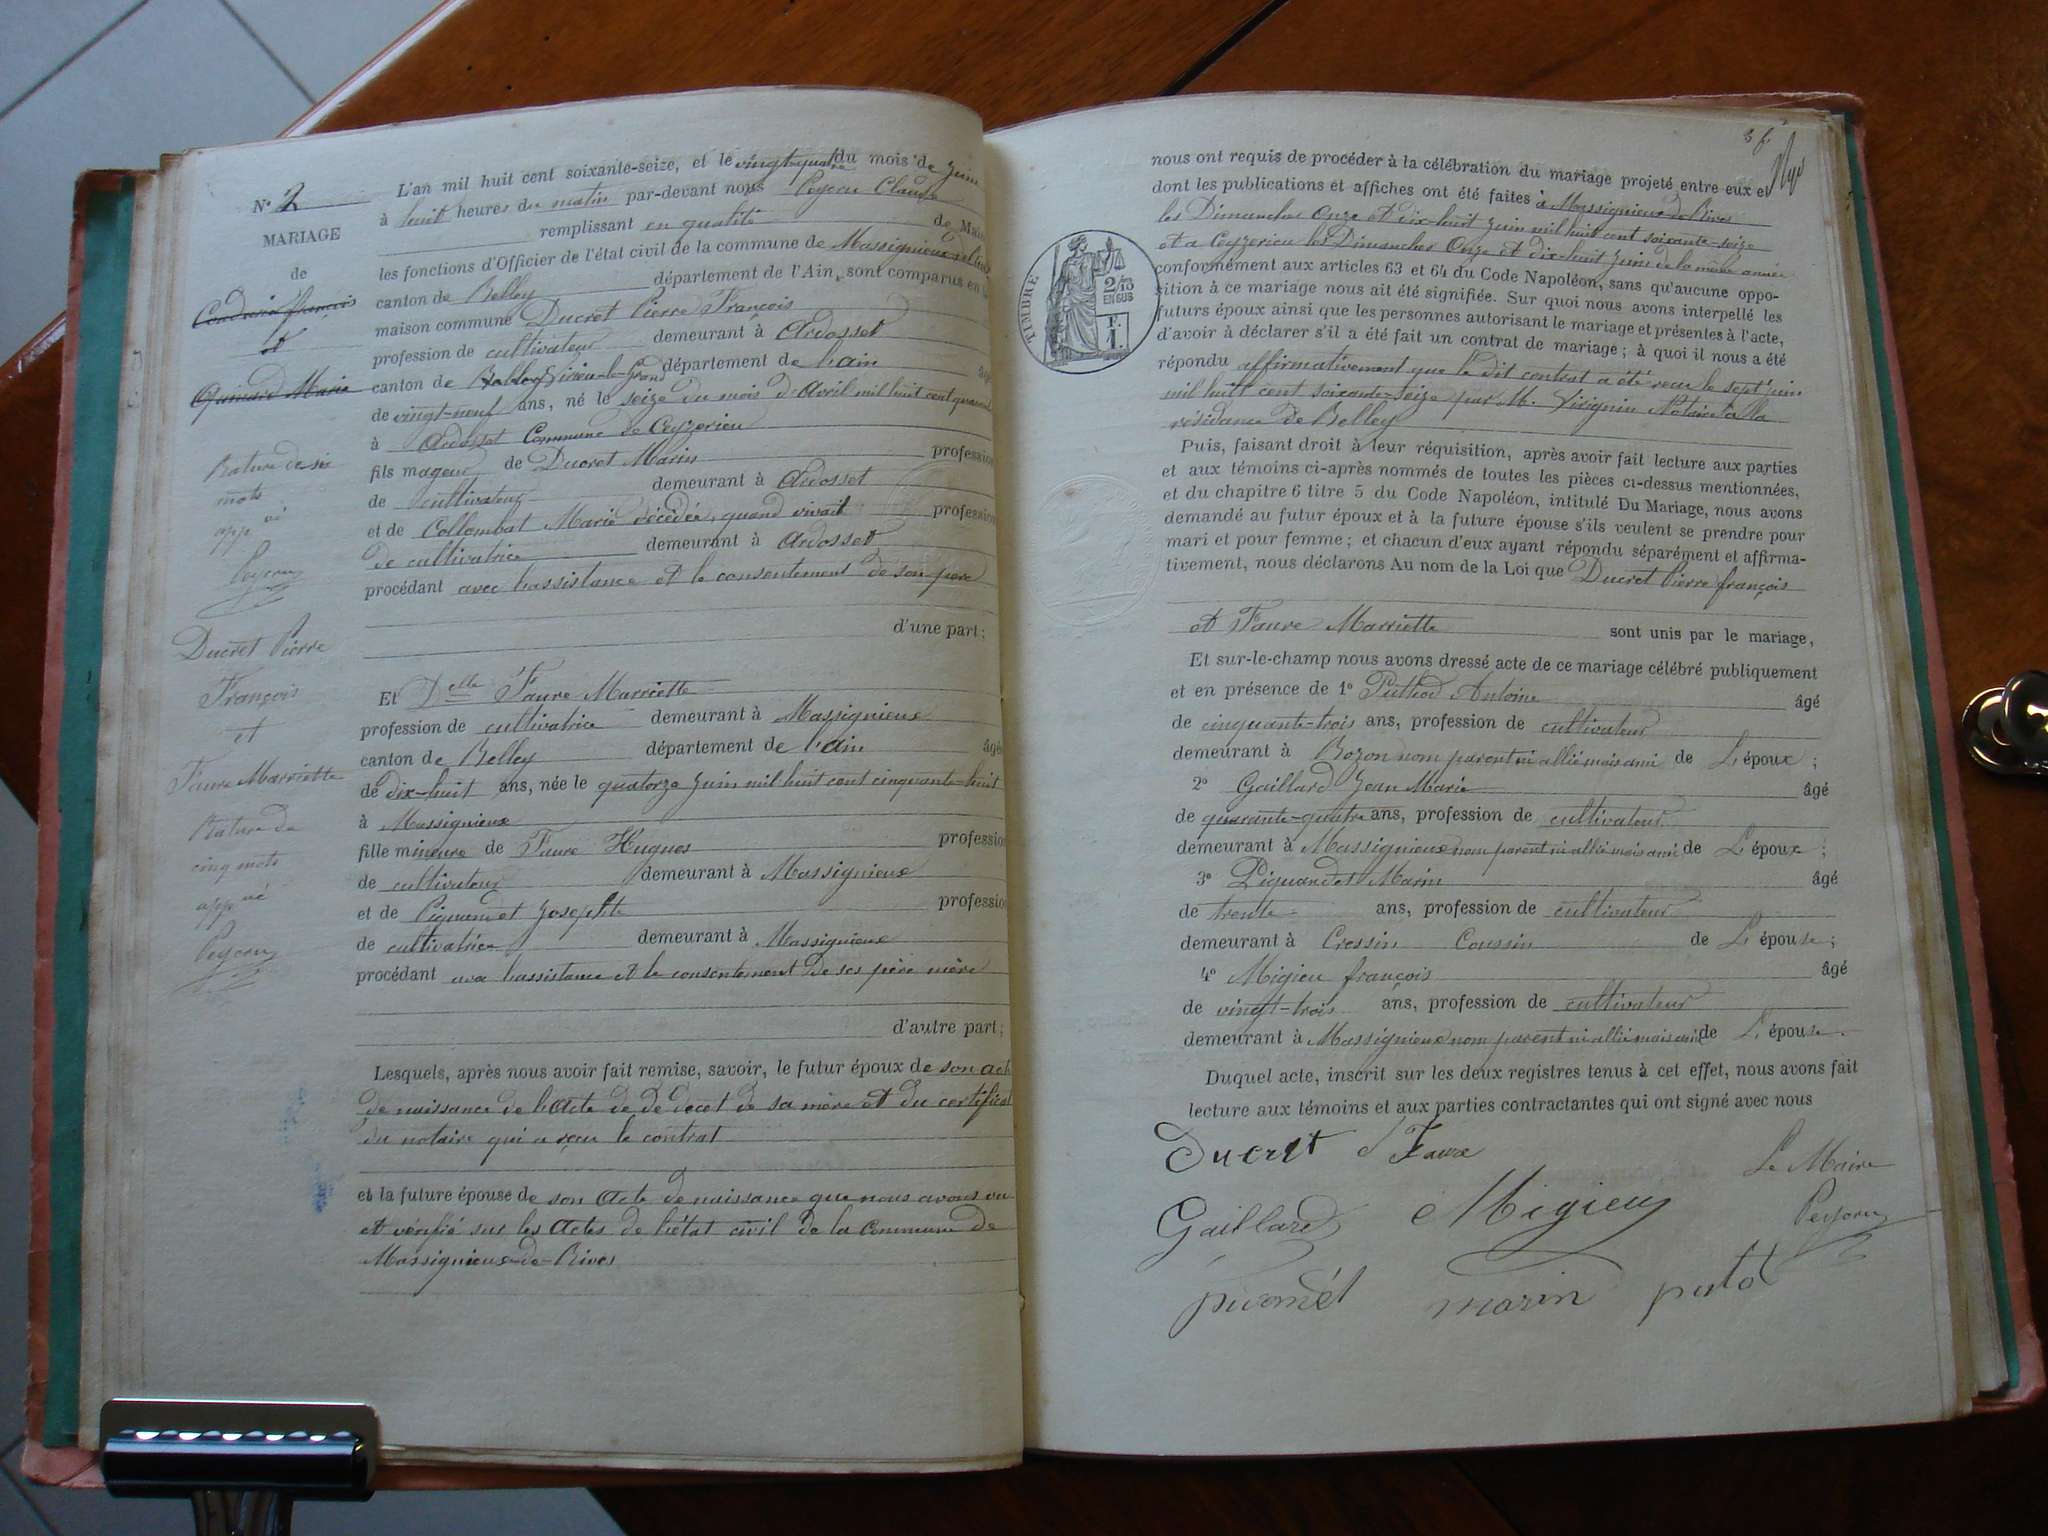 N° 2
MARIAGE
de
Condrania françois
et
Marie
Rature de six
mots
app vé
Peysson
Ducret Pierre
François
et
Faure Marriette
Rature de
cinq mots
app vé
L'an mil huit cent soixante-seize, et le vingt-quatre du mois de Juin
à huit heures du matin par-devant nous Claude
remplissant en qualité de Maire
les fonctions d'Officier de l'état civil de la commune de Massignieu de Rives
canton de Belley département de l'Ain, sont comparus en la
maison commune Ducret Pierre François
profession de cultivateur demeurant à Ardosset
canton de Belley Virieu-le-Grand département de l'ain âgé
de vingt-neuf ans, né le seize du mois d'Avril mil huit cent quarante
à Ardosset Commune de Ceyzerieu
fils mageur de Ducret Marin profession
de cultivateur demeurant à Ardosset
et de Collombat Marie décédée, quand vivait profession
de cultivatrice demeurant à Ardosset
procédant avec l'assistance et le consentement de son père
d'une part;
Et Delle Faure Marriette
profession de cultivatrice demeurant à Massignieux
canton de Belley département de l'ain âgé
de dix-huit ans, née le quatorze Juin mil huit cent cinquante-huit
à Massignieux
fille mineure de Faure Hugues profession
de cultivateur demeurant à Massignieux
et de Pignard et Josephte profession
de cultivatrice demeurant à Massignieux
procédant avec l'assistance et le consentement de ses père mère
d'autre part;
Lesquels, après nous avoir fait remise, savoir, le futur époux de son acte
de naissance de l'Acte de de decet de sa mère et du certificat
du notaire qui a reçu le contrat
et la future épouse de son Acte de naissance que nous avons vu
et vérifié sur les Actes de l'état civil de la Commune de
Massignieux-de-Rives
3 f.
TIMBRE
2/10
EN SUS
F.
1.
nous ont requis de procéder à la célébration du mariage projeté entre eux et
dont les publications et affiches ont été faites à Massignieux de Rives
les Dimanches Onze et dix-huit Juin mil huit cent soixante-seize
et a Ceyzerieu les Dimanches Onze et dix-huit Juin de la même année
conformément aux articles 63 et 64 du Code Napoléon, sans qu'aucune oppo-
sition à ce mariage nous ait été signifiée. Sur quoi nous avons interpellé les
futurs époux ainsi que les personnes autorisant le mariage et présentes à l'acte,
d'avoir à déclarer s'il a été fait un contrat de mariage ; à quoi il nous a été
répondu affirmativement que le dit contrat a été reçu le sept juin
mil huit cent soixante-seize par M. Virignin Notaire à la
résidance de Belley
Puis, faisant droit à leur réquisition, après avoir fait lecture aux parties
et aux témoins ci-après nommés de toutes les pièces ci-dessus mentionnées,
et du chapitre 6 titre 5 du Code Napoléon, intitulé Du Mariage, nous avons
demandé au futur époux et à la future épouse s'ils veulent se prendre pour
mari et pour femme ; et chacun d'eux ayant répondu séparément et affirma-
tivement, nous déclarons Au nom de la Loi que Ducret Pierre françois
et Faure Marriette sont unis par le mariage,
Et sur-le-champ nous avons dressé acte de ce mariage célébré publiquement
et en présence de 1° Antoine âgé
de cinquante-trois ans, profession de cultivateur
demeurant à Bozon nom parent ni allié mais ami de L'époux ;
2° Gaillard Jean Marie âgé
de quarante-quatre ans, profession de cultivateur
demeurant à Massignieux nom parent ni allié mais ami de L'époux ;
3° Piquand et Marin âgé
de trente ans, profession de cultivateur
demeurant à Cressin Coussin de L'épouse ;
4° Migieu françois âgé
de vingt-trois ans, profession de cultivateur
demeurant à Massignieux nom parent ni allié mais ami de L'épouse.
Duquel acte, inscrit sur les deux registres tenus à cet effet, nous avons fait
lecture aux témoins et aux parties contractantes qui ont signé avec nous
Ducret Faure
Le Maire
Gaillard Migieu
marin